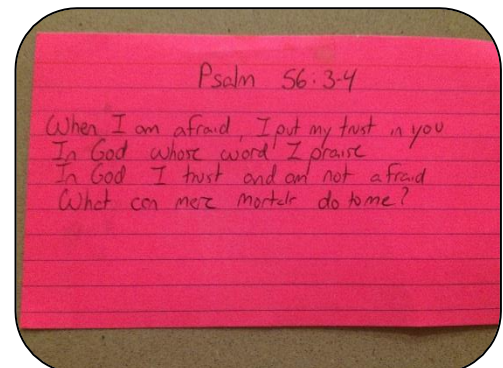 Psalm 56:3-4
When I am afraid, I put my trust in you
In God whose word I praise
In God I trust and am not afraid
What can mere mortals do to me?